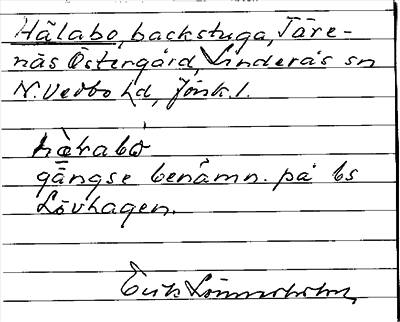 Hälabo, backstuga, Täre-
näs Östergård, Linderås sn
N. Vedbo hd, Jönk. l.
hæ̀rabo
gängse benämn. på bs
Lövhagen.
Erik Lönnerholm